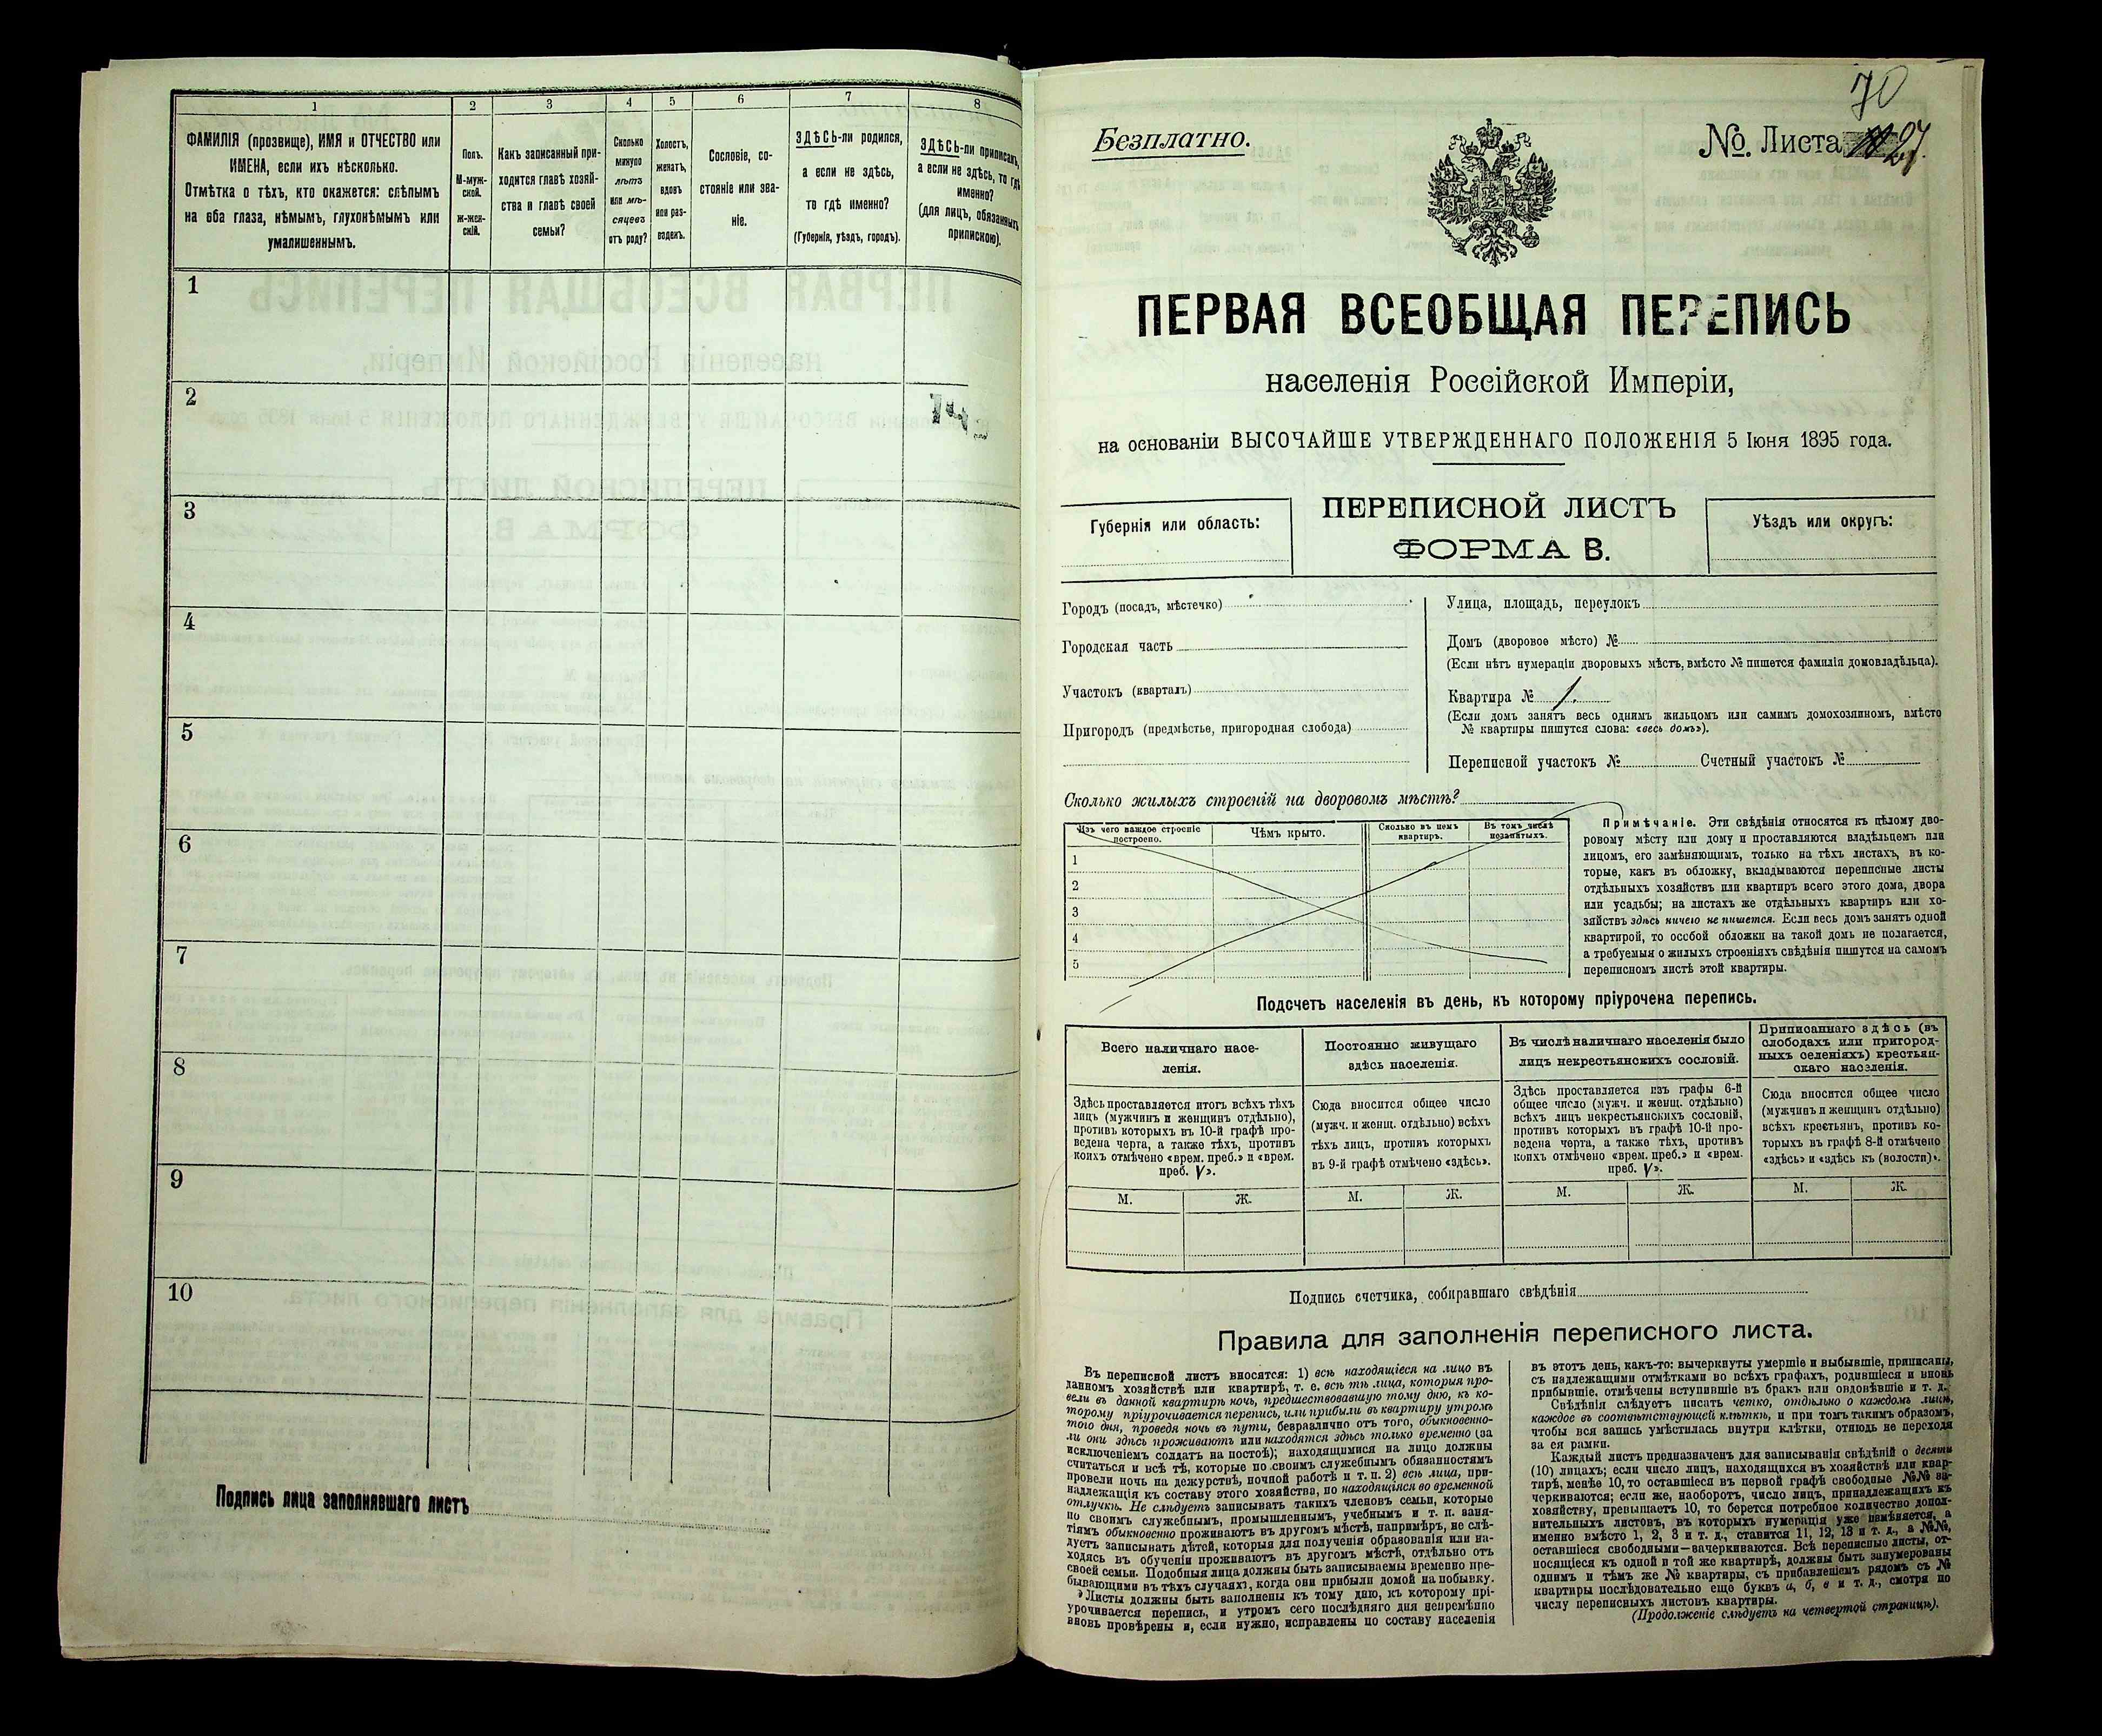 1 2 3 4 5 6 7 8
ФАМИЛІЯ (прозвище), ИМЯ и ОТЧЕСТВО или
ИМЕНА, если ихъ нѣсколько.
Отмѣтка о тѣхъ, кто окажется: слѣпымъ
на оба глаза, нѣмымъ, глухонѣмымъ или
умалишеннымъ.
Полъ.
М-муж-
ской.
Ж-жен-
скій.
Какъ записанный при-
ходится главѣ хозяй-
ства и главѣ своей
семьи?
Сколько
минуло
лѣтъ
или мѣ-
сяцевъ
отъ роду?
Холостъ,
женатъ,
вдовъ
или раз-
веденъ.
Сословіе, со-
стояніе или зва-
ніе.
ЗДѢСЬ-ли родился,
а если не здѣсь,
то гдѣ именно?
(Губернія, уѣздъ, городъ).
ЗДѢСЬ-ли приписанъ,
а если не здѣсь, то гдѣ
именно?
(для лицъ, обязанныхъ
припискою).
1
2
3
4
5
6
7
8
9
10
Подпись лица заполнявшаго листъ
70
Безплатно.
№. Листа 27.
ПЕРВАЯ ВСЕОБЩАЯ ПЕРЕПИСЬ
населенія Россійской Имперіи,
на основаніи ВЫСОЧАЙШЕ УТВЕРЖДЕННАГО ПОЛОЖЕНІЯ 5 Іюня 1895 года.
Губернія или область:
ПЕРЕПИСНОЙ ЛИСТЪ
ФОРМА В.
Уѣздъ или округъ:
Городъ (посадъ, мѣстечко)
Городская часть
Участокъ (кварталъ)
Пригородъ (предмѣстье, пригородная слобода)
Улица, площадь, переулокъ
Домъ (дворовое мѣсто) №
(Если нѣтъ нумераціи дворовыхъ мѣстъ, вмѣсто № пишется фамилія домовладѣльца).
Квартира № 1.
(Если домъ занятъ весь однимъ жильцомъ или самимъ домохозяиномъ, вмѣсто
№ квартиры пишутся слова: «весь домъ»).
Переписной участокъ № Счетный участокъ №
Сколько жилыхъ строеній на дворовомъ мѣстѣ?
Изъ чего каждое строеніе
построено.
Чѣмъ крыто.
Сколько въ немъ
квартиръ.
Въ томъ числѣ
незанятыхъ.
1
2
3
4
5
Примѣчаніе. Эти свѣдѣнія относятся къ цѣлому дво-
ровому мѣсту или дому и проставляются владѣльцемъ или
лицомъ, его замѣняющимъ, только на тѣхъ листахъ, въ ко-
торые, какъ въ обложку, вкладываются переписные листы
отдѣльныхъ хозяйствъ или квартиръ всего этого дома, двора
или усадьбы; на листахъ же отдѣльныхъ квартиръ или хо-
зяйствъ здѣсь ничего не пишется. Если весь домъ занятъ одной
квартирой, то особой обложки на такой домъ не полагается,
а требуемыя о жилыхъ строеніяхъ свѣдѣнія пишутся на самомъ
переписномъ листѣ этой квартиры.
Подсчетъ населенія въ день, къ которому пріурочена перепись.
Всего наличнаго насе-
ленія.
Здѣсь проставляется итогъ всѣхъ тѣхъ
лицъ (мужчинъ и женщинъ отдѣльно),
противъ которыхъ въ 10-й графѣ про-
ведена черта, а также тѣхъ, противъ
коихъ отмѣчено «врем. преб.» и «врем.
преб. V».
Постоянно живущаго
здѣсь населенія.
Сюда вносится общее число
(мужч. и женщ. отдѣльно) всѣхъ
тѣхъ лицъ, противъ которыхъ
въ 9-й графѣ отмѣчено «здѣсь».
Въ числѣ наличнаго населенія было
лицъ некрестьянскихъ сословій.
Здѣсь проставляется изъ графы 6-й
общее число (мужч. и женщ. отдѣльно)
всѣхъ лицъ некрестьянскихъ сословій,
противъ которыхъ въ графѣ 10-й про-
ведена черта, а также тѣхъ, противъ
коихъ отмѣчено «врем. преб.» и «врем.
преб. V».
Приписаннаго здѣсь (въ
слободахъ или пригород-
ныхъ селеніяхъ) крестьян-
скаго населенія.
Сюда вносится общее число
(мужчинъ и женщинъ отдѣльно)
всѣхъ крестьянъ, противъ ко-
торыхъ въ графѣ 8-й отмѣчено
«здѣсь» и «здѣсь къ (волости)».
М. Ж. М. Ж. М. Ж. М. Ж.
Подпись счетчика, собиравшаго свѣдѣнія
Правила для заполненія переписного листа.
Въ переписной листъ вносятся: 1) всѣ находящіеся на лицо въ
данномъ хозяйствѣ или квартирѣ, т. е. всѣ тѣ лица, которыя про-
вели въ данной квартирѣ ночь, предшествовавшую тому дню, къ ко-
торому пріурочивается перепись, или прибыли въ квартиру утромъ
того дня, проведя ночь въ пути, безразлично отъ того, обыкновенно-
ли они здѣсь проживаютъ или находятся здѣсь только временно (за
исключеніемъ солдатъ на постоѣ); находящимися на лицо должны
считаться и всѣ тѣ, которые по своимъ служебнымъ обязанностямъ
провели ночь на дежурствѣ, ночной работѣ и т. п. 2) всѣ лица, при-
надлежащія къ составу этого хозяйства, но находящіяся во временной
отлучкѣ. Не слѣдуетъ записывать такихъ членовъ семьи, которые
по своимъ служебнымъ, промышленнымъ, учебнымъ и т. п. заня-
тіямъ обыкновенно проживаютъ въ другомъ мѣстѣ, напримѣръ, не слѣ-
дуетъ записывать дѣтей, которыя для полученія образованія или на-
ходясь въ обученіи проживаютъ въ другомъ мѣстѣ, отдѣльно отъ
своей семьи. Подобныя лица должны быть записываемы временно пре-
бывающими въ тѣхъ случаяхъ, когда они прибыли домой на побывку.
Листы должны быть заполнены къ тому дню, къ которому прі-
урочивается перепись, и утромъ сего послѣдняго дня непремѣнно
вновь провѣрены и, если нужно, исправлены по составу населенія
въ этотъ день, какъ-то: вычеркнуты умершіе и выбывшіе, приписаны,
съ надлежащими отмѣтками во всѣхъ графахъ, родившіеся и вновь
прибывшіе, отмѣчены вступившіе въ бракъ или овдовѣвшіе и т. д.
Свѣдѣнія слѣдуетъ писать четко, отдѣльно о каждомъ лицѣ,
каждое въ соотвѣтствующей клѣткѣ, и при томъ такимъ образомъ,
чтобы вся запись умѣстилась внутри клѣтки, отнюдь не переходя
за ея рамки.
Каждый листъ предназначенъ для записыванія свѣдѣній о десяти
(10) лицахъ; если число лицъ, находящихся въ хозяйствѣ или квар-
тирѣ, менѣе 10, то оставшіеся въ первой графѣ свободные №№ за-
черкиваются; если же, наоборотъ, число лицъ, принадлежащихъ къ
хозяйству, превышаетъ 10, то берется потребное количество допол-
нительныхъ листовъ, въ которыхъ нумерація уже измѣняется, а
именно вмѣсто 1, 2, 3 и т. д., ставится 11, 12, 13 и т. д., а №№,
оставшіеся свободными—зачеркиваются. Всѣ переписные листы, от-
носящіеся къ одной и той же квартирѣ, должны быть занумерованы
однимъ и тѣмъ же № квартиры, съ прибавленіемъ рядомъ съ №
квартиры послѣдовательно еще буквъ а, б, в и т. д., смотря по
числу переписныхъ листовъ квартиры.
(Продолженіе слѣдуетъ на четвертой страницѣ).